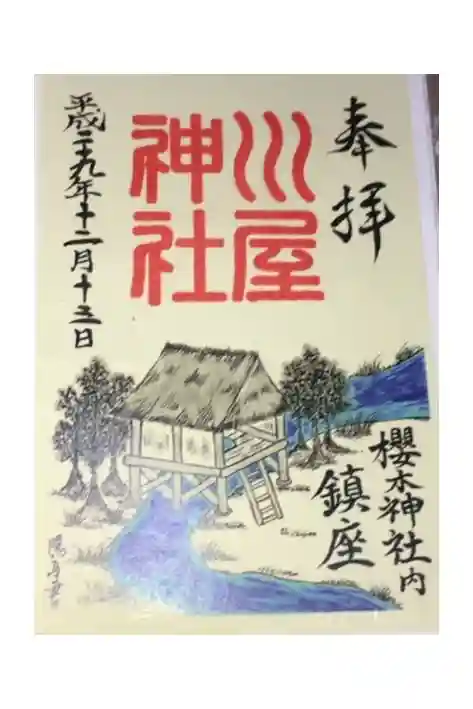 奉拝
川屋
神社
櫻木神社内
鎮座
平成二十九年十二月十三日